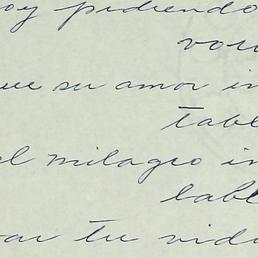 oy pidiendo
vol
ue su amor in
tabl
el milagro in
labl
ar tu vida